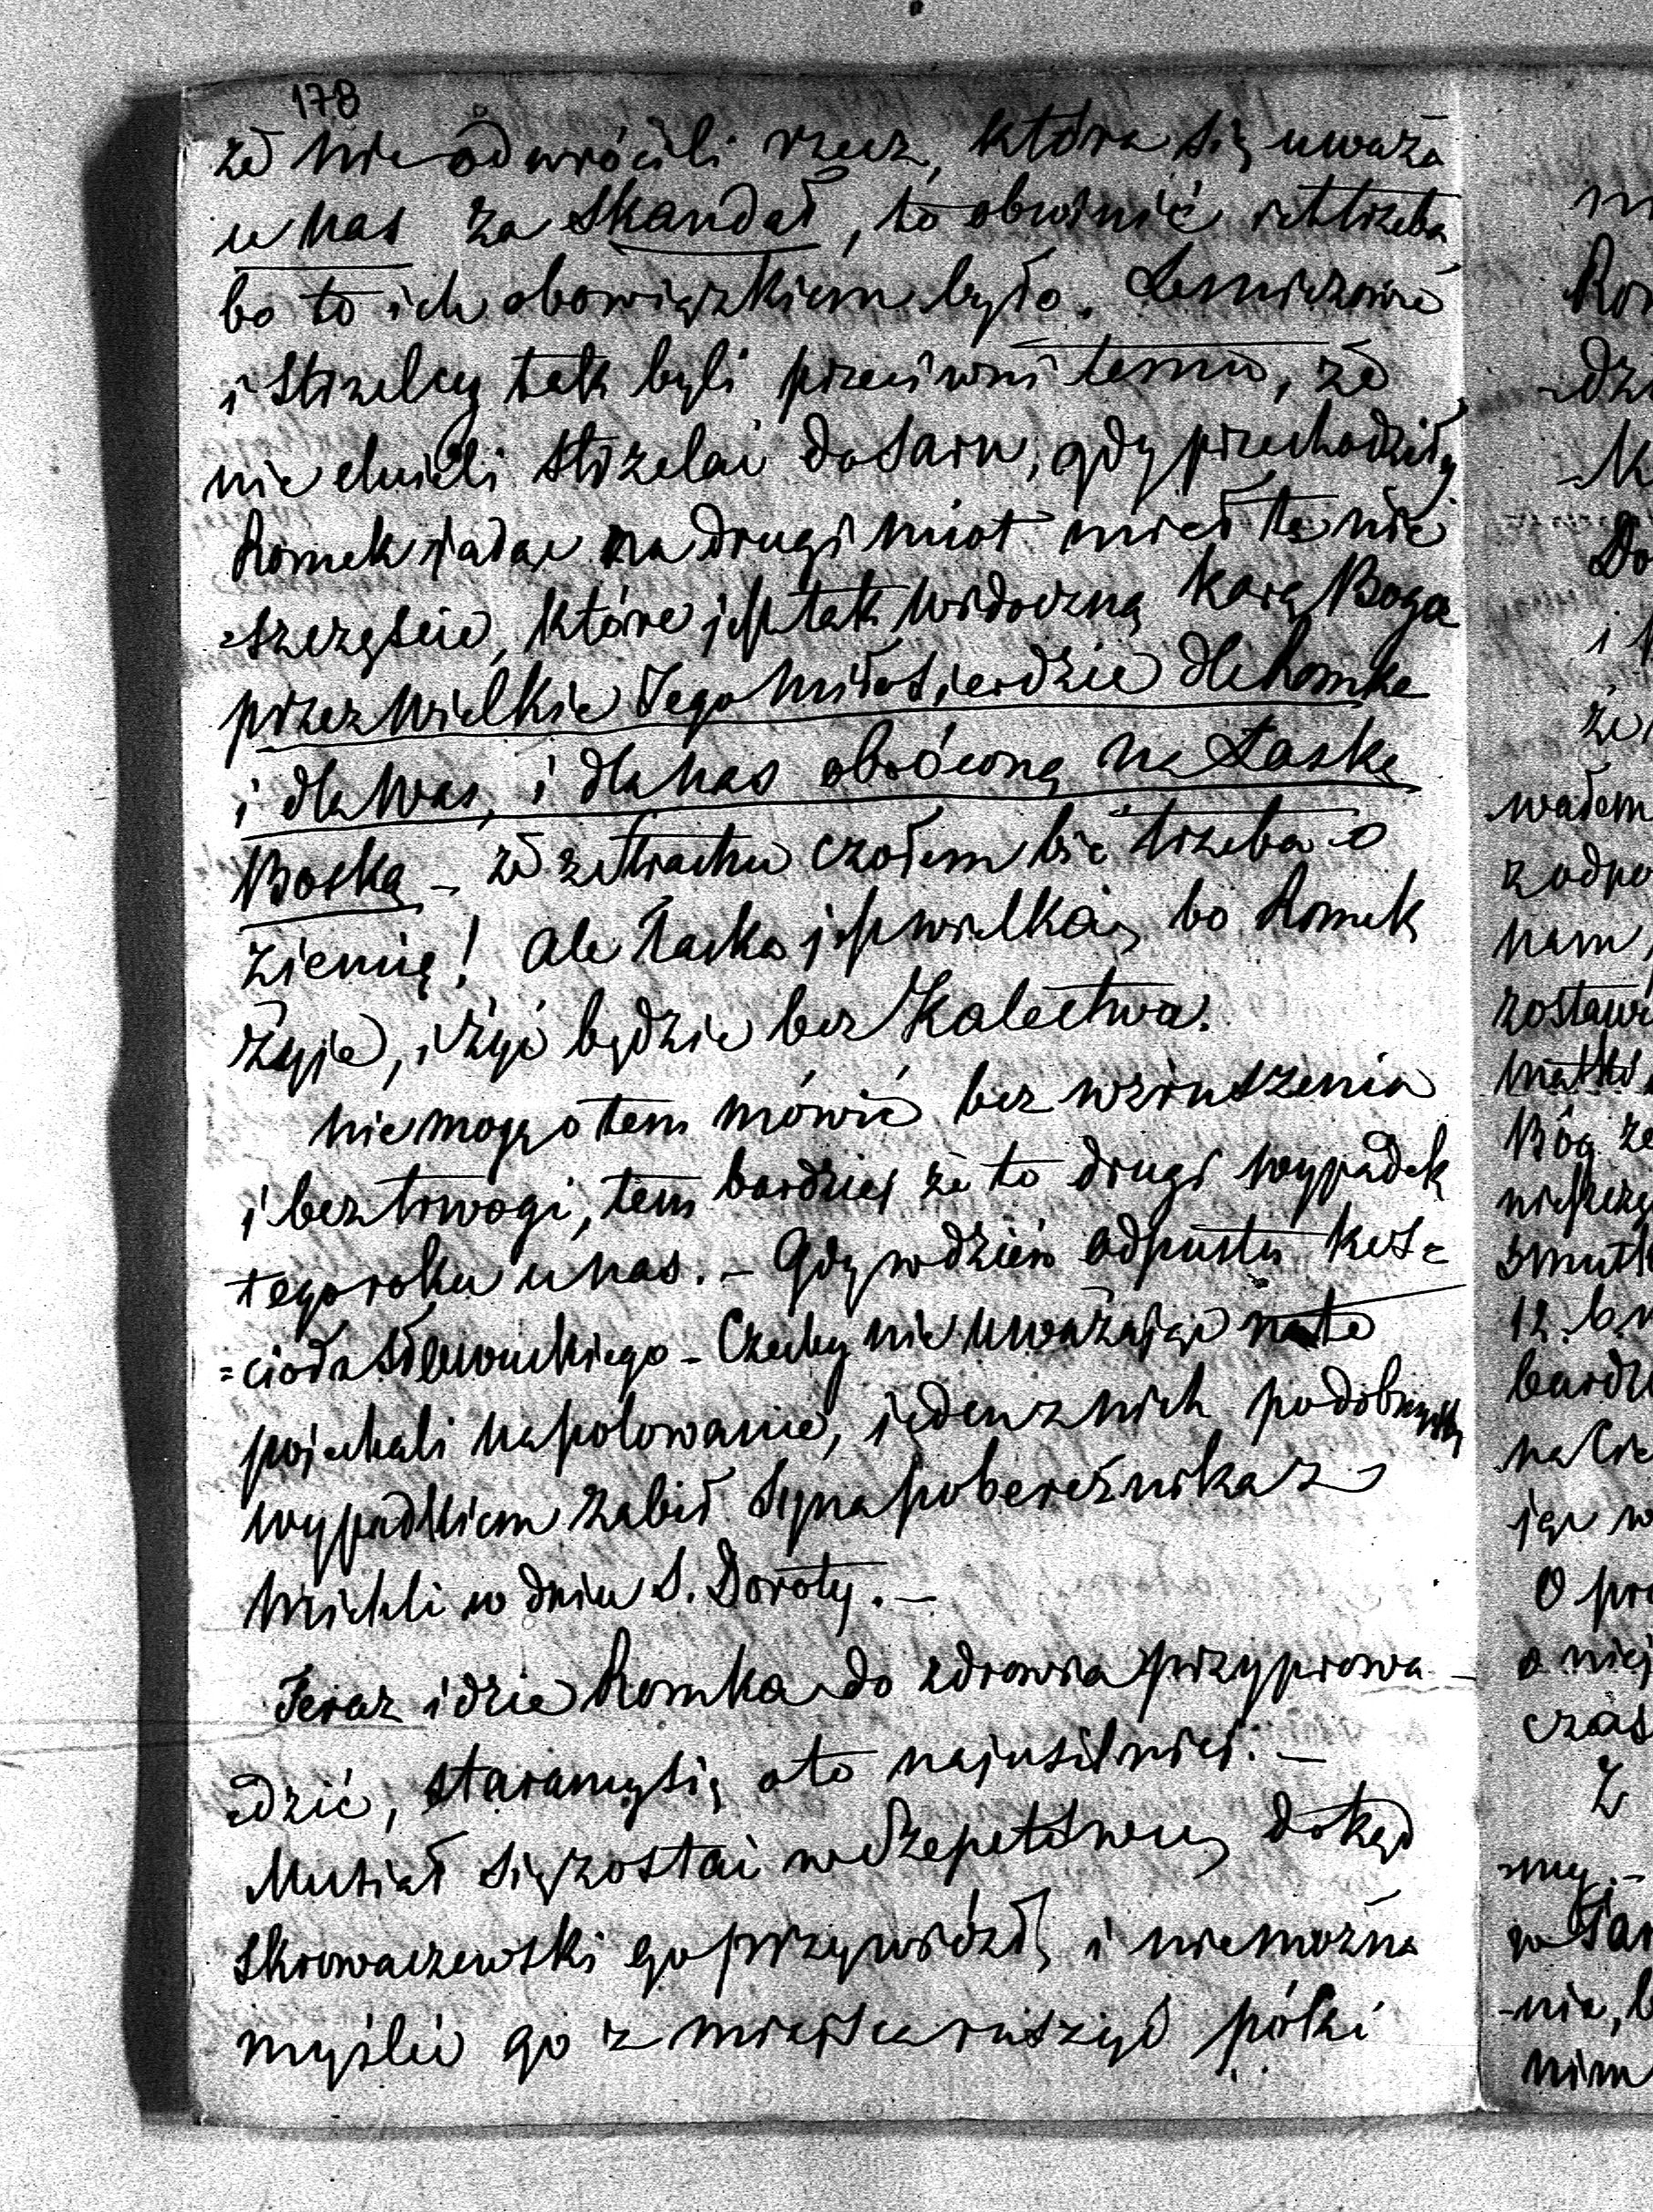 178
że nie odwrócili rzecz, która się uważa
u nas za skandał, to obwinić ich trzeba
bo to ich obowiązkiem było. Leśniczowie
i strzelcy tak byli przeciwni temu, że
nie chcieli strzelać do sarn, gdy przechodziły
Romek siadając na drugi miot miał to nie
=szczęście, które jest tak widoczną karą Boga
przez wielkie Jego miłosierdzie dla Romka
i dla Was, i dla nas obróconą na Łaskę
Boską – że ze strachu czołem bić trzeba o
ziemię! Ale Łaska jest wielka, bo Romek
żyje, i żyć będzie bez Kalectwa.
Nie mogę o tem mówić bez wzruszenia
i bez trwogi, tem bardziej że to drugi wypadek
tego roku u nas. – Gdy w dzień odpustu koś=
=cioła Sławuckiego – Czechy nie uważając na to
pojechali na polowanie, jeden z nich podobnym
wypadkiem zabił syna pobereżnika z
w dniu S. Doroty. –
Teraz idzie Romka do zdrowia przyprowa-
-dzić, staramy się o to najusilniej. –
Musiał się zostać w Szepetówce, dokąd
Skrowaczewski go przywiózł, i nie można
myśleć go z miejsca ruszyć póki
m
Ron
-dzi
-K
Do
i
że
wałem
z odpo
nam,
zostawi
matki
Bóg że
nieszczę
smutk
12. b. m
bardz
na Cie
jąc w
O pro
o niej
czas
Z
-my. –
w Tar
-nia, b
nim